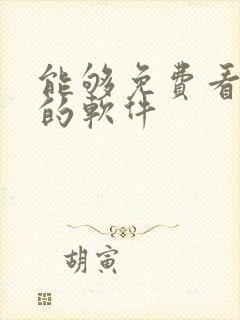 能够免費看
的軟件
胡寅